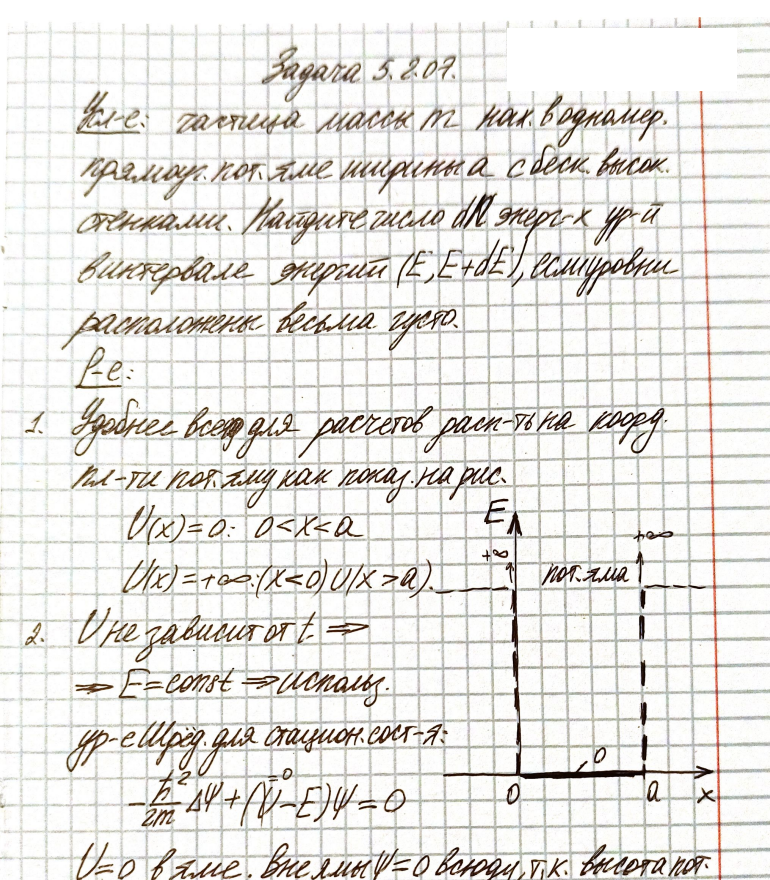 Задача 5.2.07.
Усл-е: частица массы m нах. в одномер.
прямоуг. пот. яме ширины a с беск. высок.
стенками. Найдите число dN энерг-х ур-й
в интервале энергий (E, E+dE), если уровни
расположены весьма густо.
Р-е:
1. Удобнее всего для расчетов расп-ть на коорд.
пл-ти пот. яму как показ. на рис.
U(x)=0: 0<x<a
U(x)=+∞: (x<0)U(x>a).
2. U не зависит от t ⇒
⇒ E=const ⇒ использ.
ур-е Шрёд. для стацион. сост-я:
-ħ²/2m ΔΨ+(U-E)Ψ=0
=0
U=0 в яме. Вне ямы Ψ=0 всюду, т.к. высота пот.
E
+∞
+∞
пот. яма
0
0
a
x